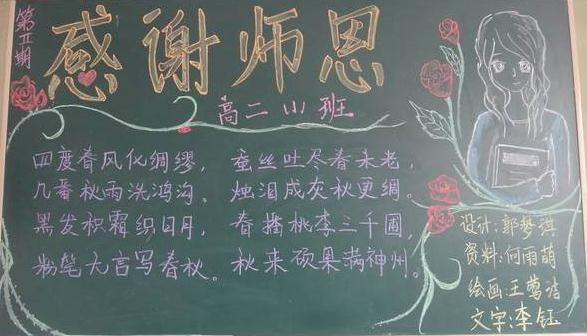 第五期
感谢师恩
高二(11)班
四度春风化绸缪,
几番秋雨洗鸿沟。
黑发积霜织日月,
粉笔无言写春秋。
蚕丝吐尽春未老,
烛泪成灰秋更稠。
春播桃李三千圃,
秋来硕果满神州。
设计:郭梦淇
资料:何雨萌
绘画:王莺洁
文字:李钰